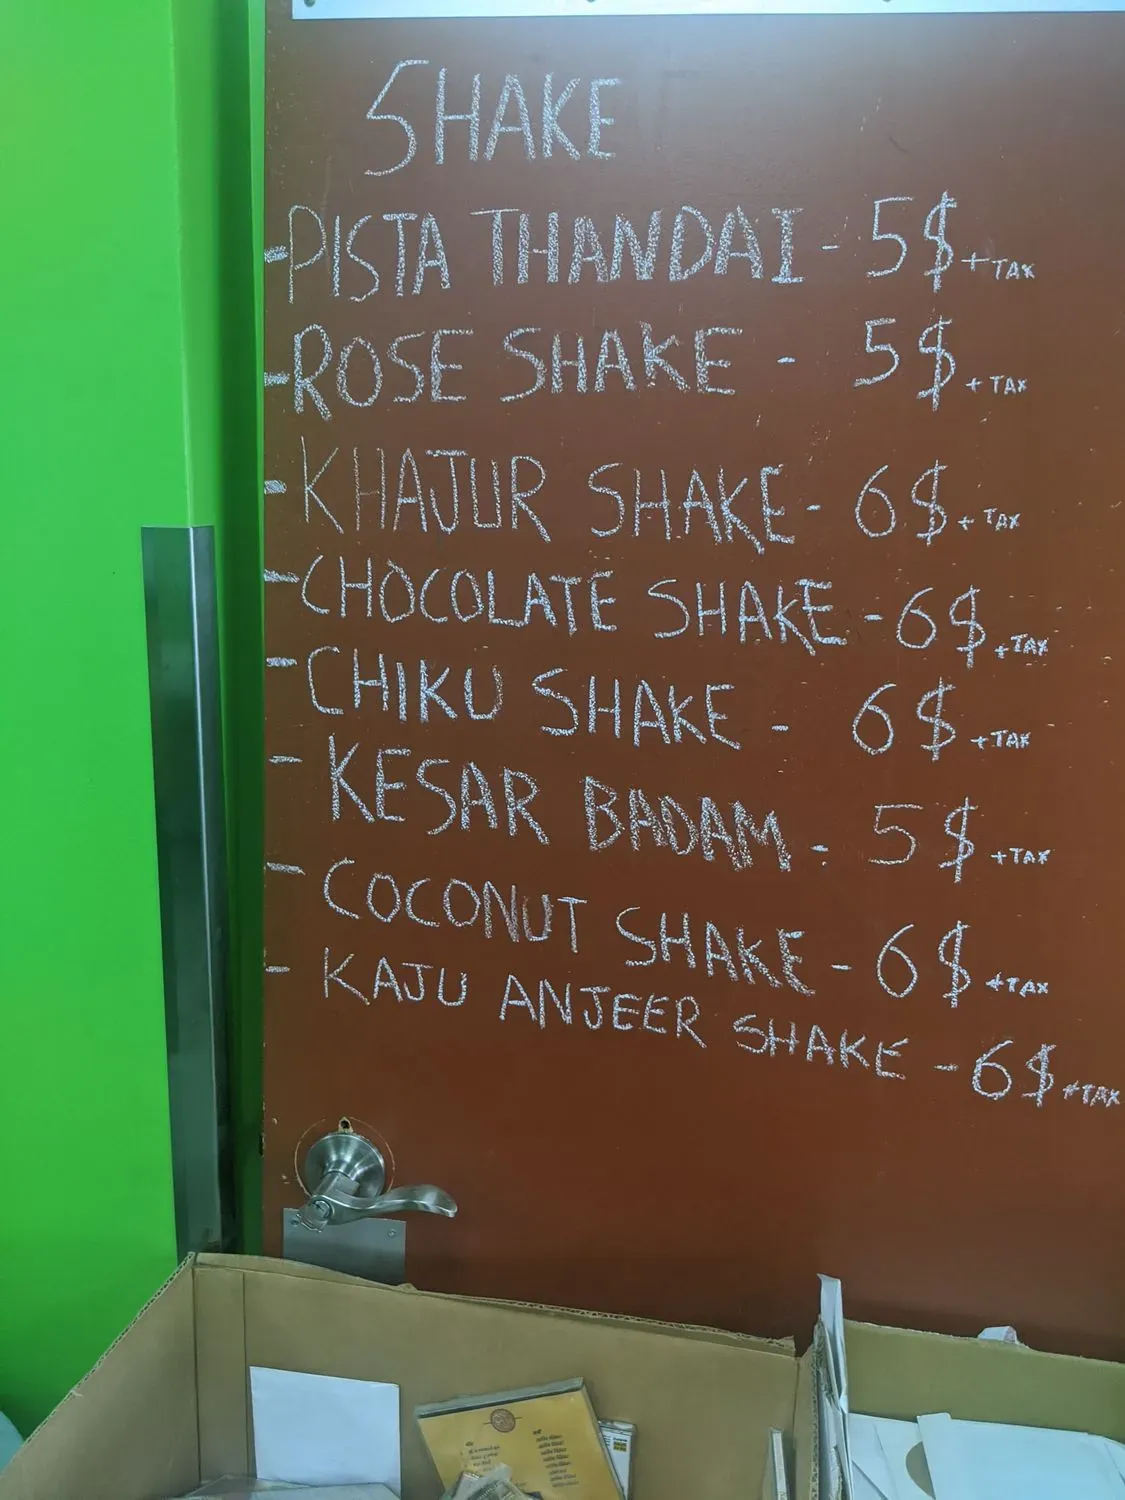 SHAKE
- PISTA THANDAI - 5$ + TAX
- ROSE SHAKE - 5$ + TAX
- KHAJUR SHAKE - 6$ + TAX
- CHOCOLATE SHAKE - 6$ + TAX
- CHIKU SHAKE - 6$ + TAX
- KESAR BADAM - 5$ + TAX
- COCONUT SHAKE - 6$ + TAX
- KAJU ANJEER SHAKE - 6$ + TAX